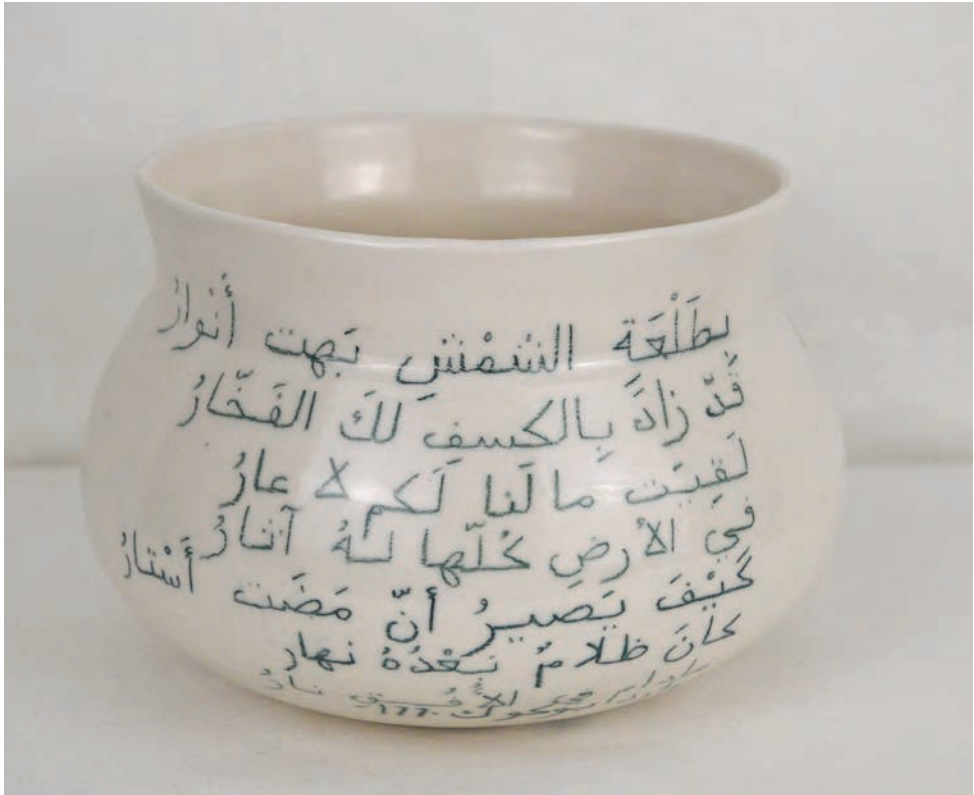 بطَلْعَة الشمْشِ بَهت أَنْوارُ
قَدّ زادَ بِالكسفِ لكَ الفَخّارُ
لَقِيَت ما لَنا لَكم لا عارُ
في الأرضِ كُلّها لهُ آثارُ
كَيْفَ يَصيرُ أنّ مَضَت أَسْتارُ
كانَ ظلامُ بَعْدُهُ نهار
نارُ